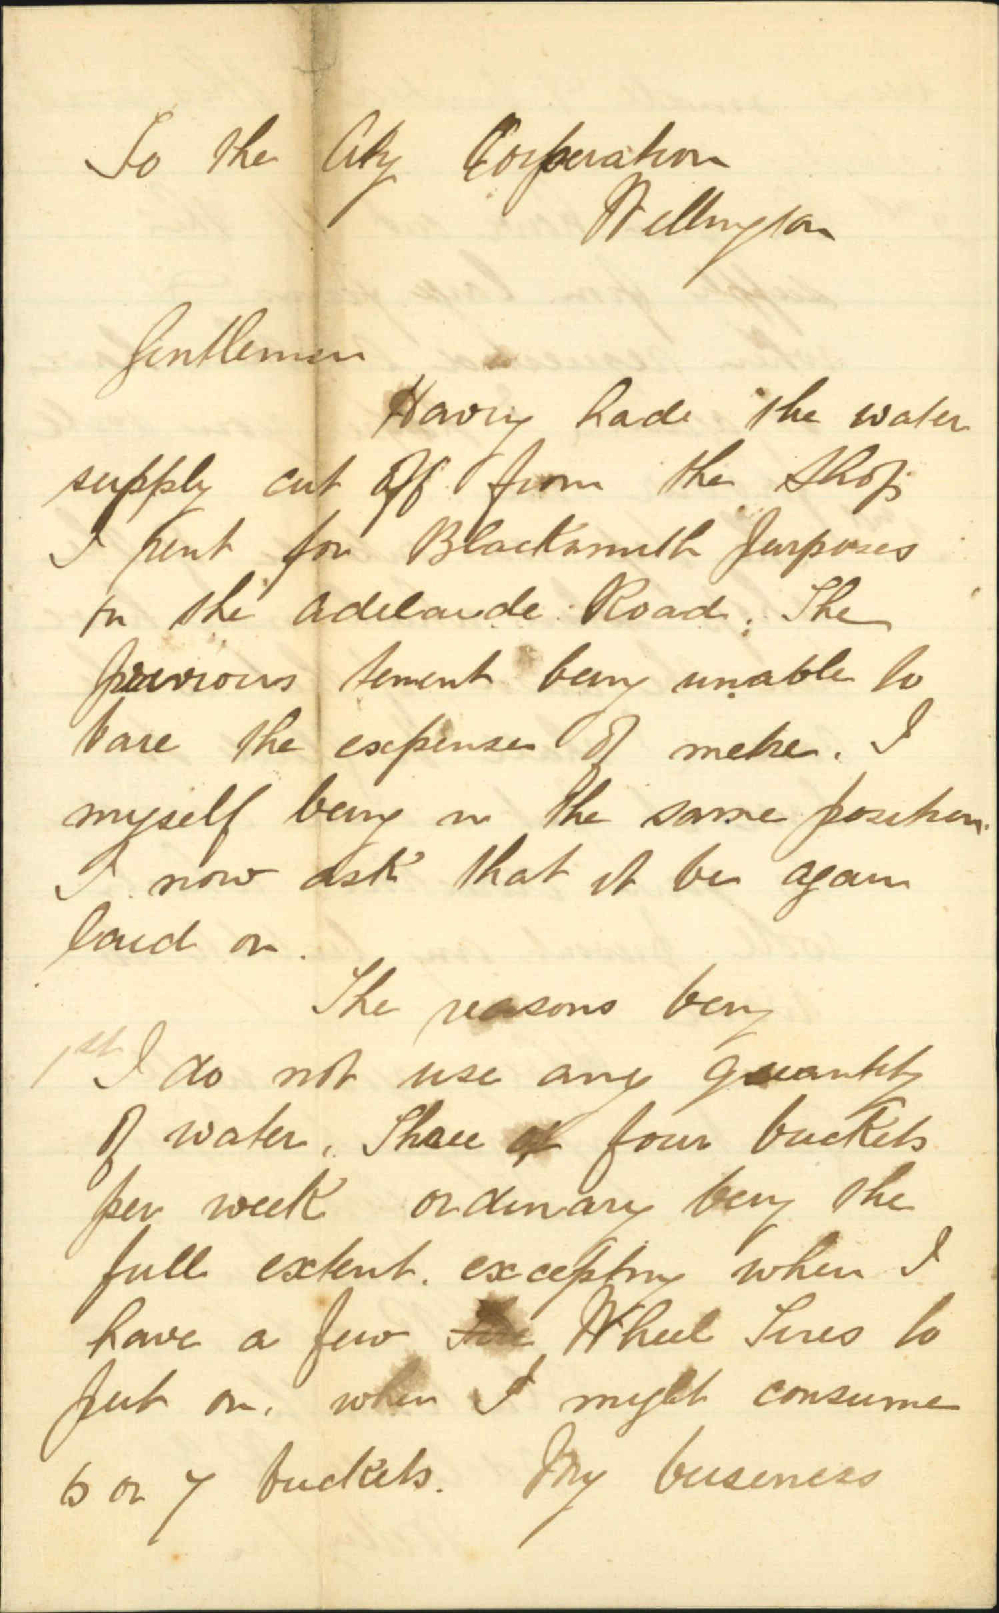 To the City Corporation
Wellington
Gentlemen
Having hade the water
supply cut off from the Shop
I rent for Blacksmith Purposes
on the adelaide Road. The
previous tenent being unable to
bare the expenses of metre. I
myself being in the same position.
I now ask that it be again
laid on.
The reasons being
1st I do not use any quantity
of water. Three or four buckets
per week ordinary being the
full extent. excepting when I
have a few Wheel Tires to
put on, when I might consume
6 or 7 buckets. My buseness